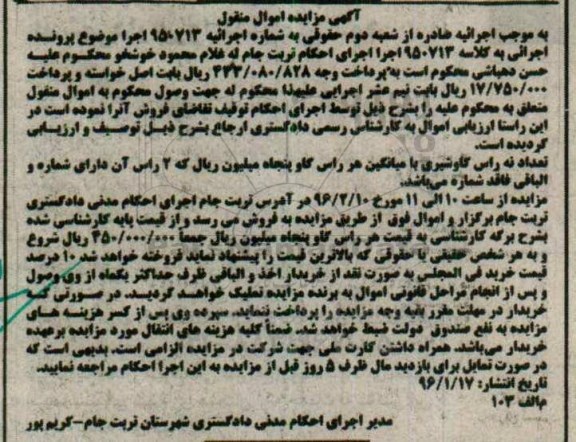 آگهی مزایده اموال منقول
به موجب اجرائیه صادره از شعبه دوم حقوقی به شماره اجرائیه ۹۵۰۷۱۳ اجرا موضوع پرونده
اجرائی به کلاسه ۹۵۰۷۱۳ اجرا اجرای احکام تربت جام له غلام محمود خوشخو محکوم علیه
حسن دهباشی محکوم است به پرداخت وجه ۳۳۳/۰۸۰/۸۲۸ ریال بابت اصل خواسته و پرداخت
۱۷/۷۵۰/۰۰۰ ریال بابت نیم عشر اجرایی علیهذا محکوم له جهت وصول محکوم به اموال منقول
متعلق به محکوم علیه را بشرح ذیل توسط اجرای احکام توقیف تقاضای فروش آنرا نموده است در
این راستا ارزیابی اموال به کارشناس رسمی دادگستری ارجاع بشرح ذیل توصیف و ارزیابی
گردیده است.
تعداد نه راس گاوشیری با میانگین هر راس گاو پنجاه میلیون ریال که ۲ راس آن دارای شماره و
الباقی فاقد شماره می‌باشد.
مزایده از ساعت ۱۰ الی ۱۱ مورخ ۹۶/۲/۱۰ در آدرس تربت جام اجرای احکام مدنی دادگستری
تربت جام برگزار و اموال فوق از طریق مزایده به فروش می رسد و از قیمت پایه کارشناسی شده
بشرح برگه کارشناسی به قیمت هر راس گاو پنجاه میلیون ریال جمعاً ۴۵۰/۰۰۰/۰۰۰ ریال شروع
و به هر شخص حقیقی یا حقوقی که بالاترین قیمت را پیشنهاد نماید فروخته خواهد شد ۱۰ درصد
قیمت خرید فی المجلس به صورت نقد از خریدار اخذ و الباقی ظرف حداکثر یکماه از وی وصول
و پس از انجام مراحل قانونی اموال به برنده مزایده تملیک خواهد گردید. در صورتی که
خریدار در مهلت مقرر بقیه وجه مزایده را پرداخت ننماید. سپرده وی پس از کسر هزینه های
مزایده به نفع صندوق دولت ضبط خواهد شد. ضمناً کلیه هزینه های انتقال مورد مزایده برعهده
خریدار می‌باشد. همراه داشتن کارت ملی جهت شرکت در مزایده الزامی است. بدیهی است که
در صورت تمایل برای بازدید مال ظرف ۵ روز قبل از مزایده به این اجرا احکام مراجعه نمایید.
تاریخ انتشار: ۹۶/۱/۱۷
م‌الف ۱۰۳
مدیر اجرای احکام مدنی دادگستری شهرستان تربت جام-کریم پور